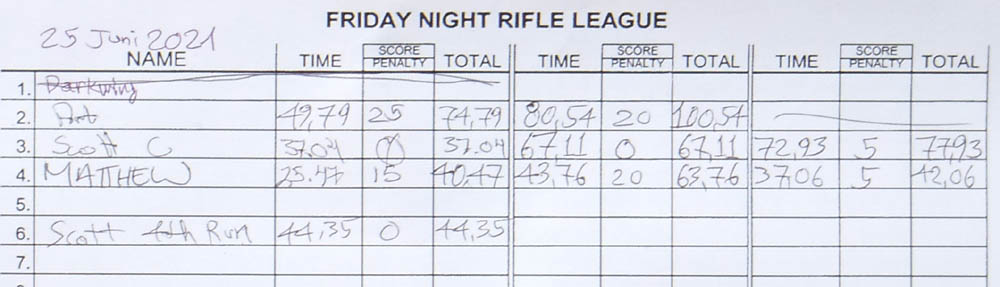 FRIDAY NIGHT RIFLE LEAGUE
25 Juni 2021
NAME TIME SCORE PENALTY TOTAL TIME SCORE PENALTY TOTAL TIME SCORE PENALTY TOTAL
1. Darkwing
2. Art 49,79 25 74,79 80,54 20 100,54
3. Scott C 37.04 0 37.04 67,11 0 67,11 72,93 5 77,93
4. MATTHEW 25.47 15 40,47 43,76 20 63,76 37,06 5 42,06
5.
6. Scott 4th Run 44,35 0 44,35
7.